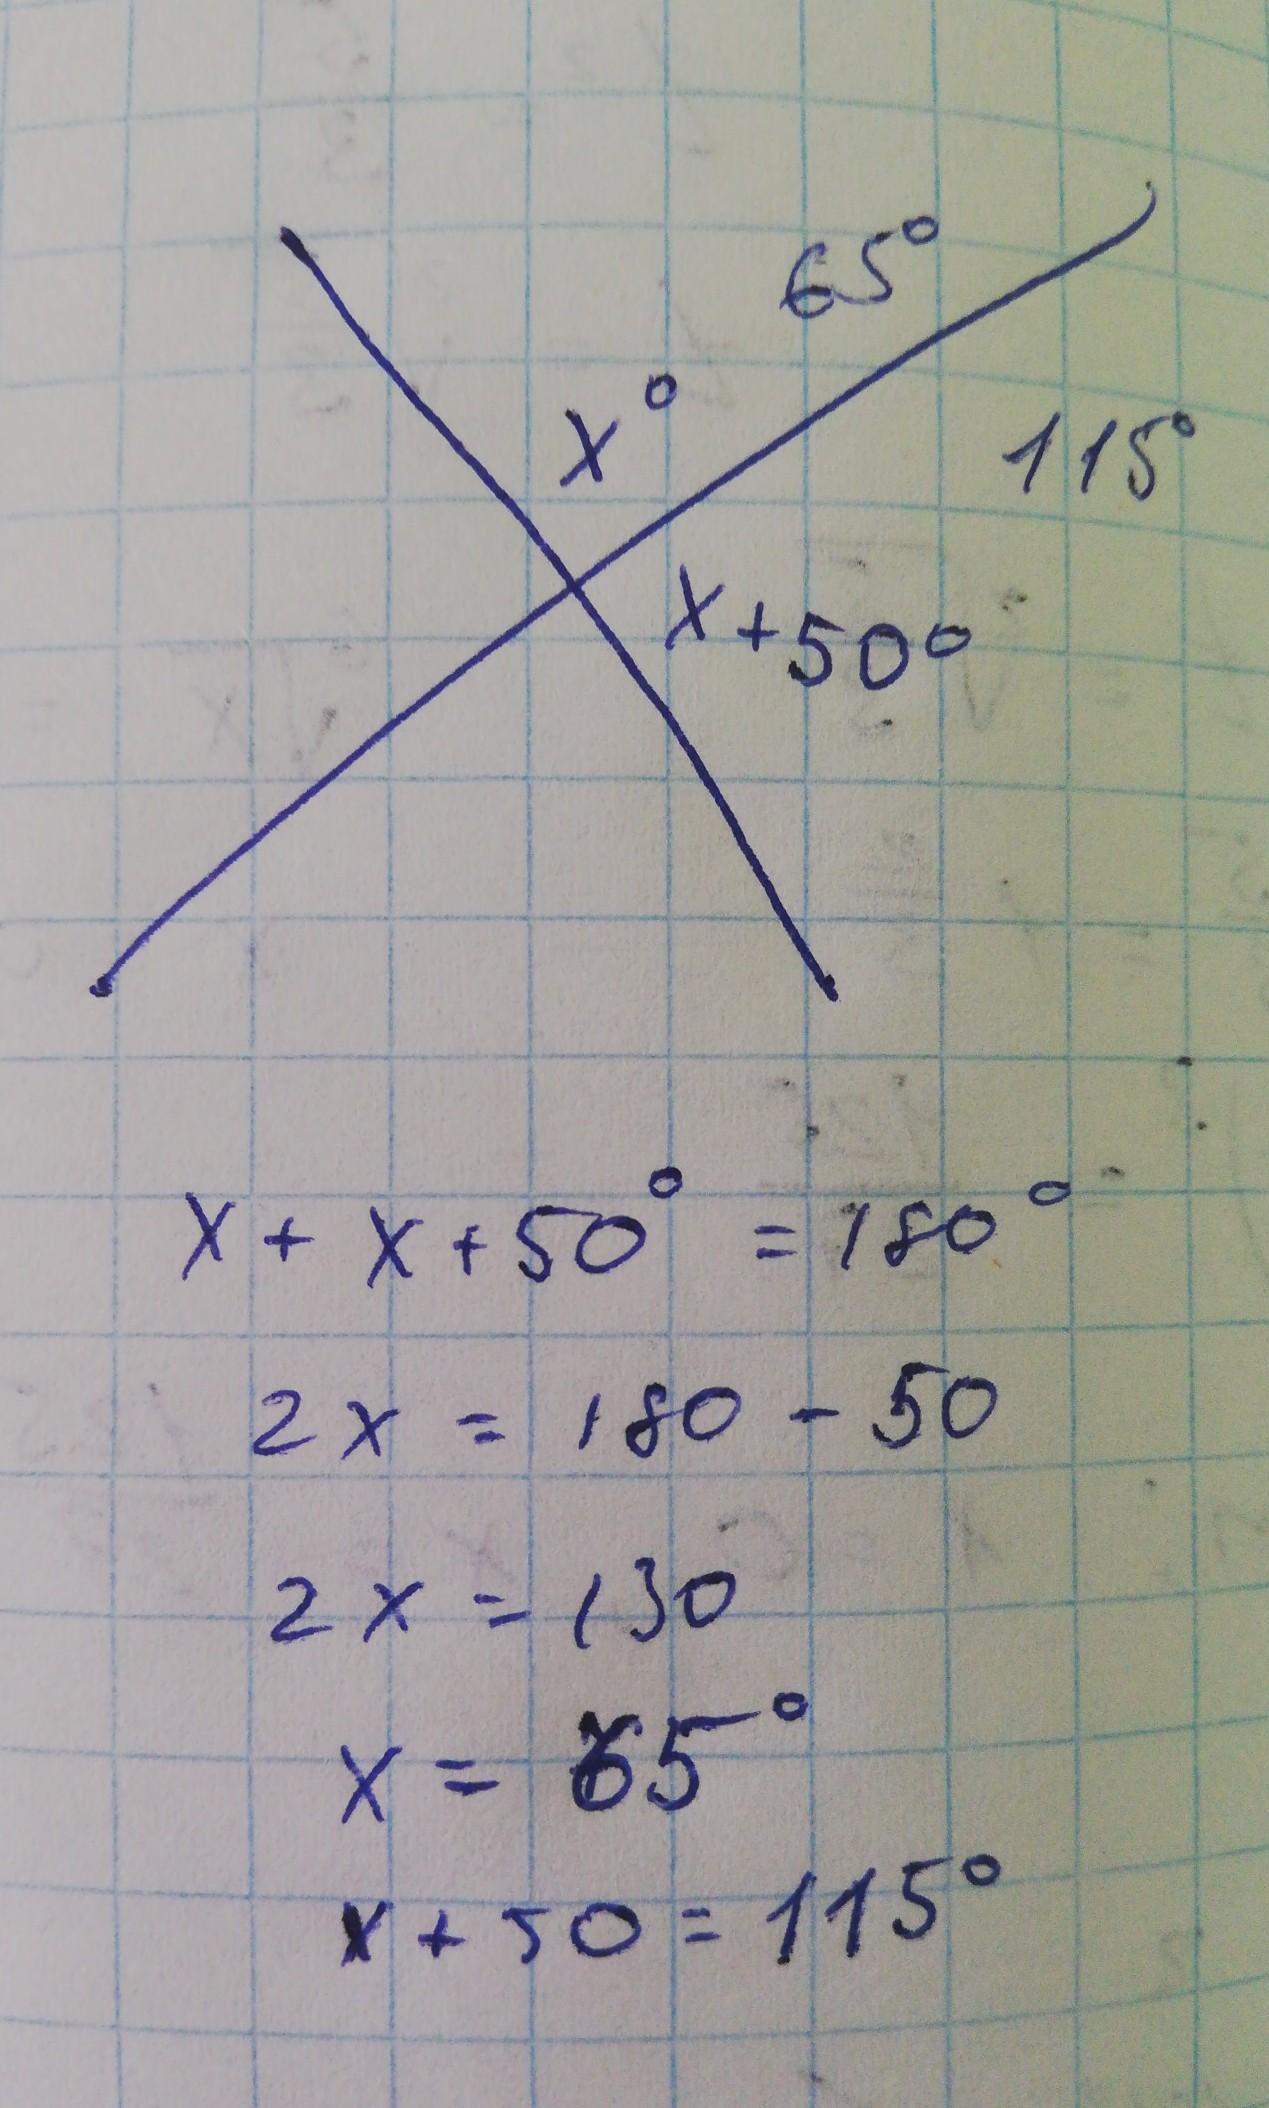 65°
x°
115°
x+50°
x + x + 50° = 180°
2x = 180 - 50
2x = 130
x = 65°
x + 50 = 115°